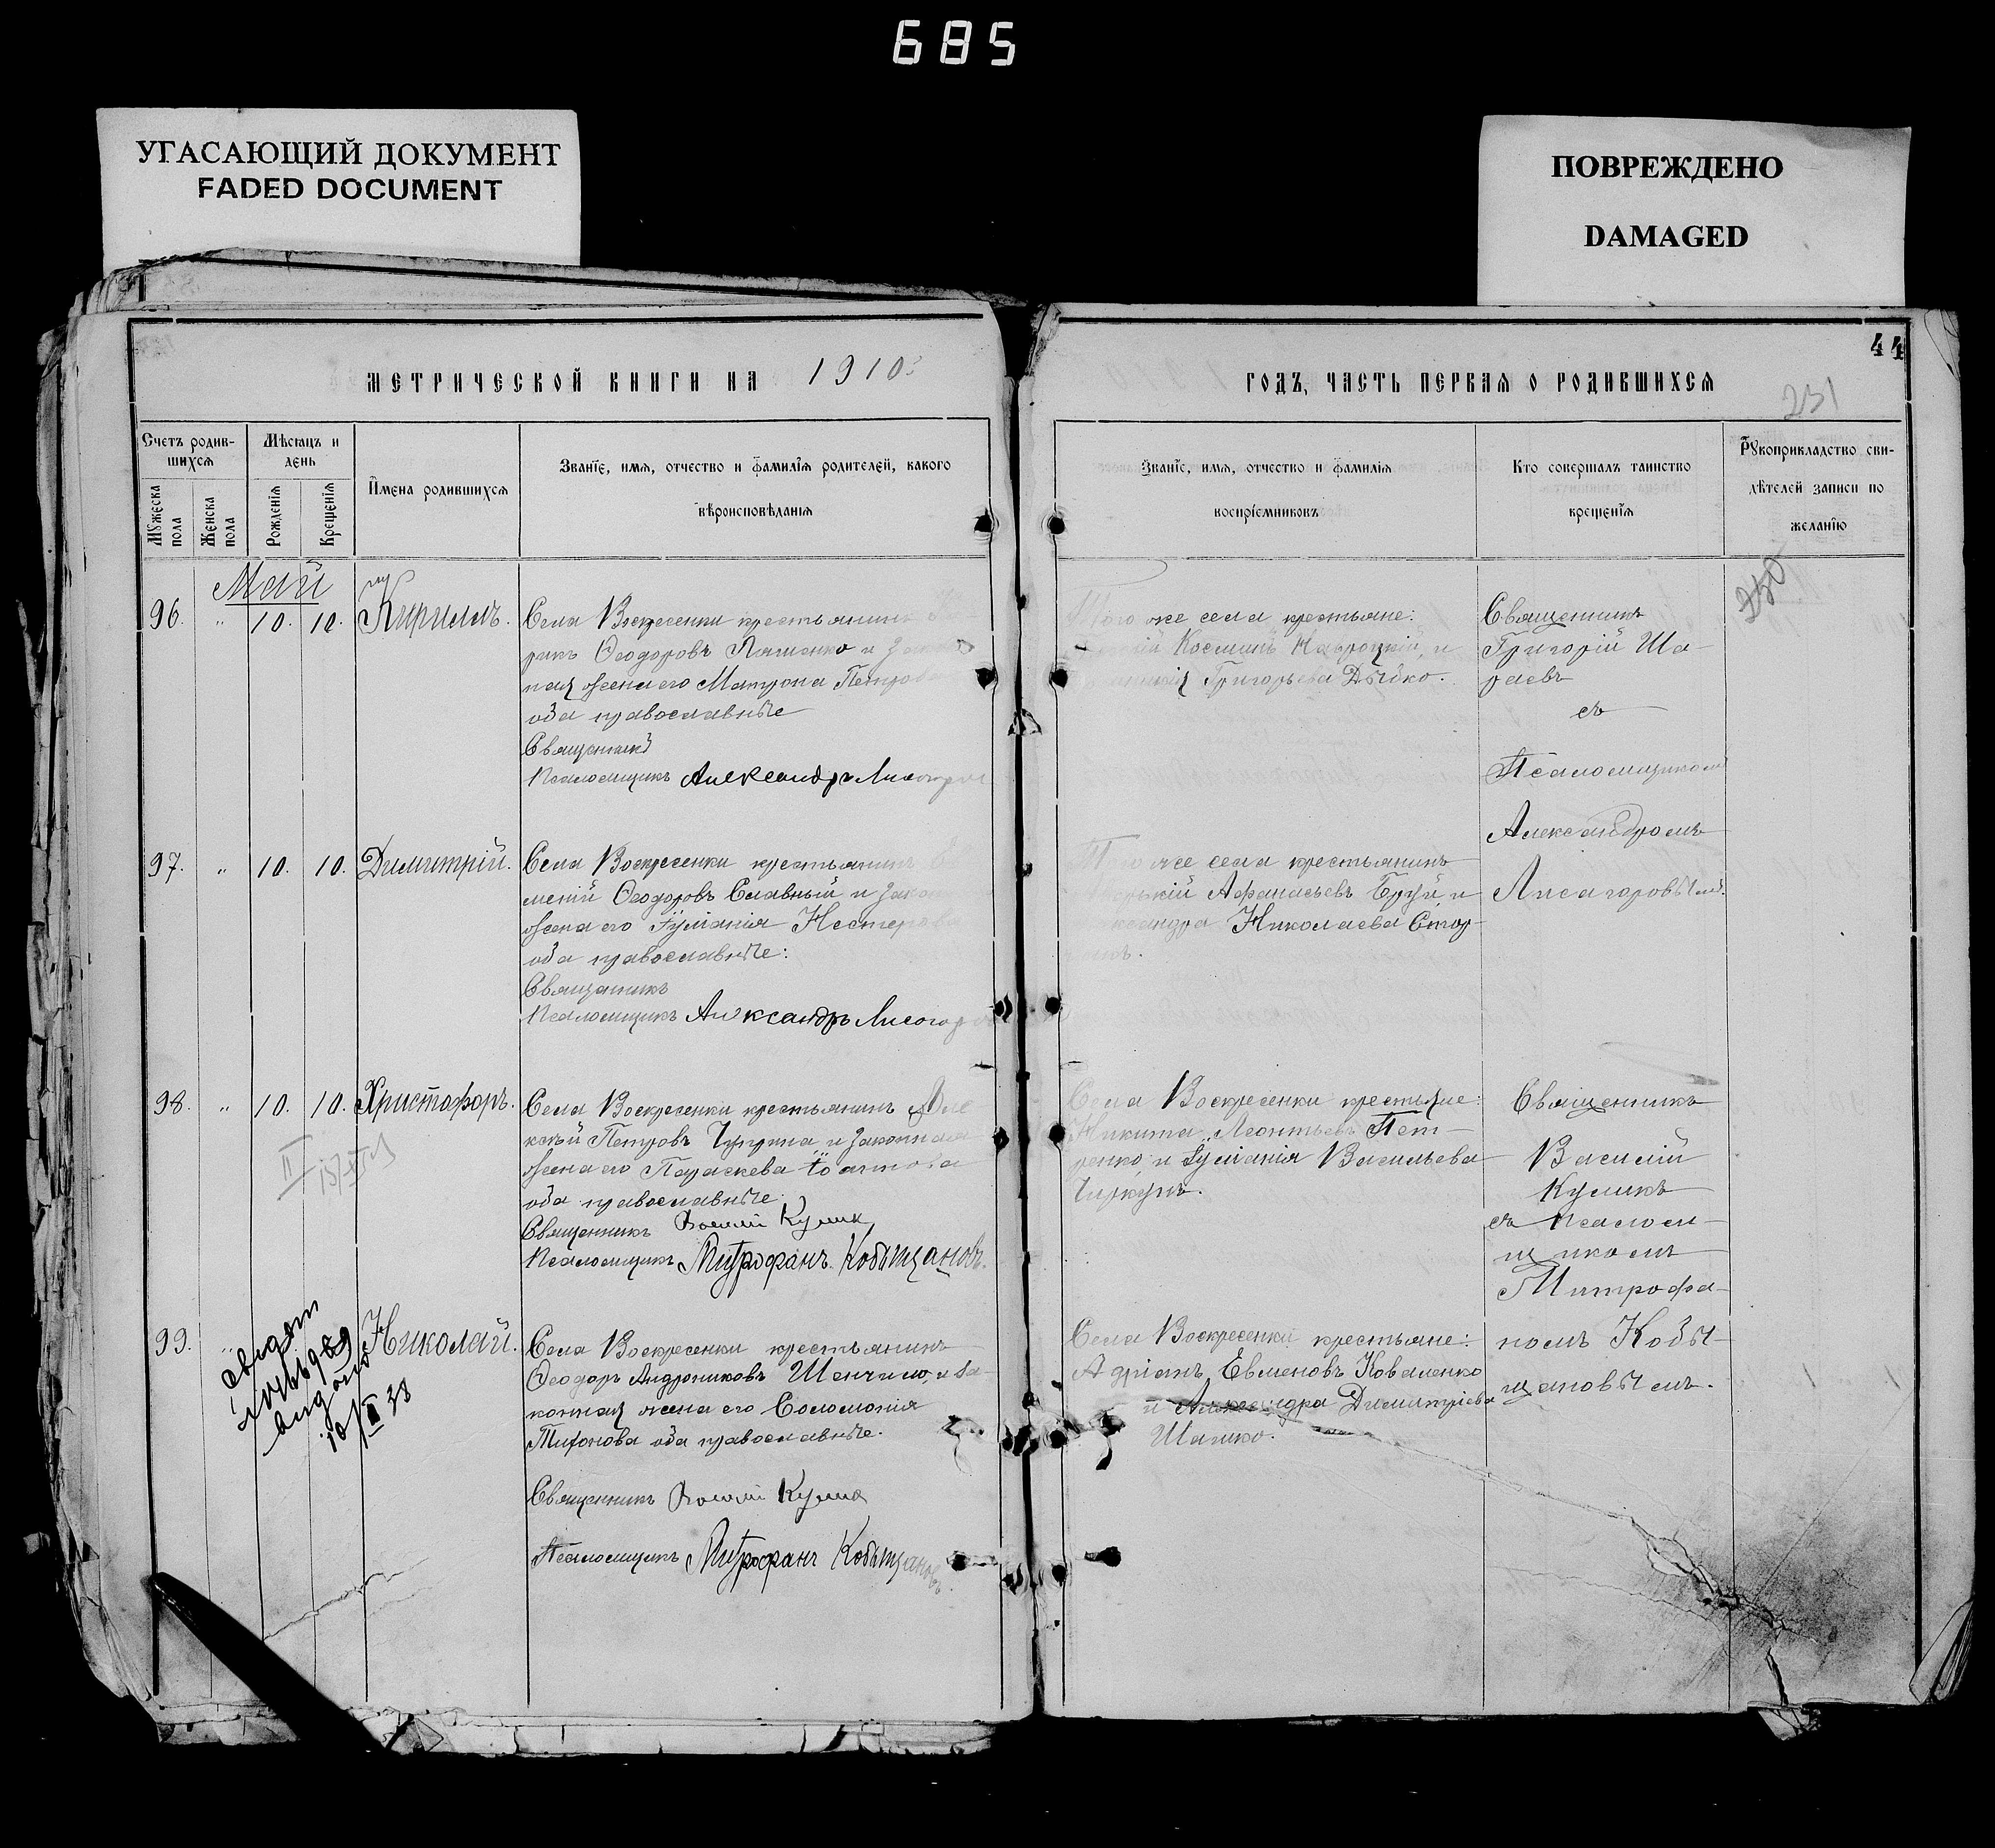 685
УГАСАЮЩИЙ ДОКУМЕНТ
FADED DOCUMENT
ПОВРЕЖДЕНО
DAMAGED
МЕТРИЧЕСКОЙ КНИГИ НА 1910
ГОДЪ, ЧАСТЬ ПЕРВАЯ О РОДИВШИХСЯ
44
231
Счетъ родив-
шихся
Мѣсяцъ и
день
Мужеска
пола
Женска
пола
Рожденія
Крещенія
Имена родившихся
Званіе, имя, отчество и фамилія родителей, какого
вѣроисповѣданія
Званіе, имя, отчество и фамилія
воспріемниковъ
Кто совершалъ таинство
крещенія
Рукоприкладство сви-
дѣтелей записи по
желанію
Май
96. " 10. 10. Кириллъ.
Села Воскресенки крестьянинъ
рикъ Ѳеодоровъ Ляшенко и зако
ная жена его Матрона Петрова
оба православные
Священникъ
Псаломщикъ Александръ Лисогор
Того же села крестьяне:
Косминъ Навроцкій, и
Григорьева Дѣйко.
Священникъ
Григорій Ша-
раевъ
съ
Псаломщикомъ
Александромъ
Лисагоровымъ.
230
97. " 10. 10. Димитрій.
Села Воскресенки крестьянинъ
меній Ѳеодоровъ Славный и закон
жена его Іуліанія Нестерова
оба православные:
Священникъ
Псаломщикъ Александръ Лисогор
Того же села крестьянинъ
Афанасьевъ Бруй и
ександра Николаева Стор-
98. " 10. 10. Христофоръ.
Села Воскресенки крестьянинъ Але
ксѣй Петровъ Чуприна и законная
жена его Параскева Іоаннова
оба православные.
Священникъ Василій Куликъ
Псаломщикъ Митрофанъ Кобыщановъ.
Села Воскресенки крестьяне:
Никита Леонтьевъ Пет-
ренко и Іуліанія Васильева
Чиркунъ.
Священникъ
Василій
Куликъ
съ псалом-
щикомъ
Митрофа-
номъ Кобы-
щановымъ.
99. " Николай.
Села Воскресенки крестьянинъ
Ѳеодоръ Андрониковъ Шенчило, и за-
конная жена его Соломонія
Тихонова оба православные.
Священникъ Василій Куликъ
Псаломщикъ Митрофанъ Кобыщановъ.
Села Воскресенки крестьяне:
Адріанъ Евменовъ Коваленко
и Александра Димитріева